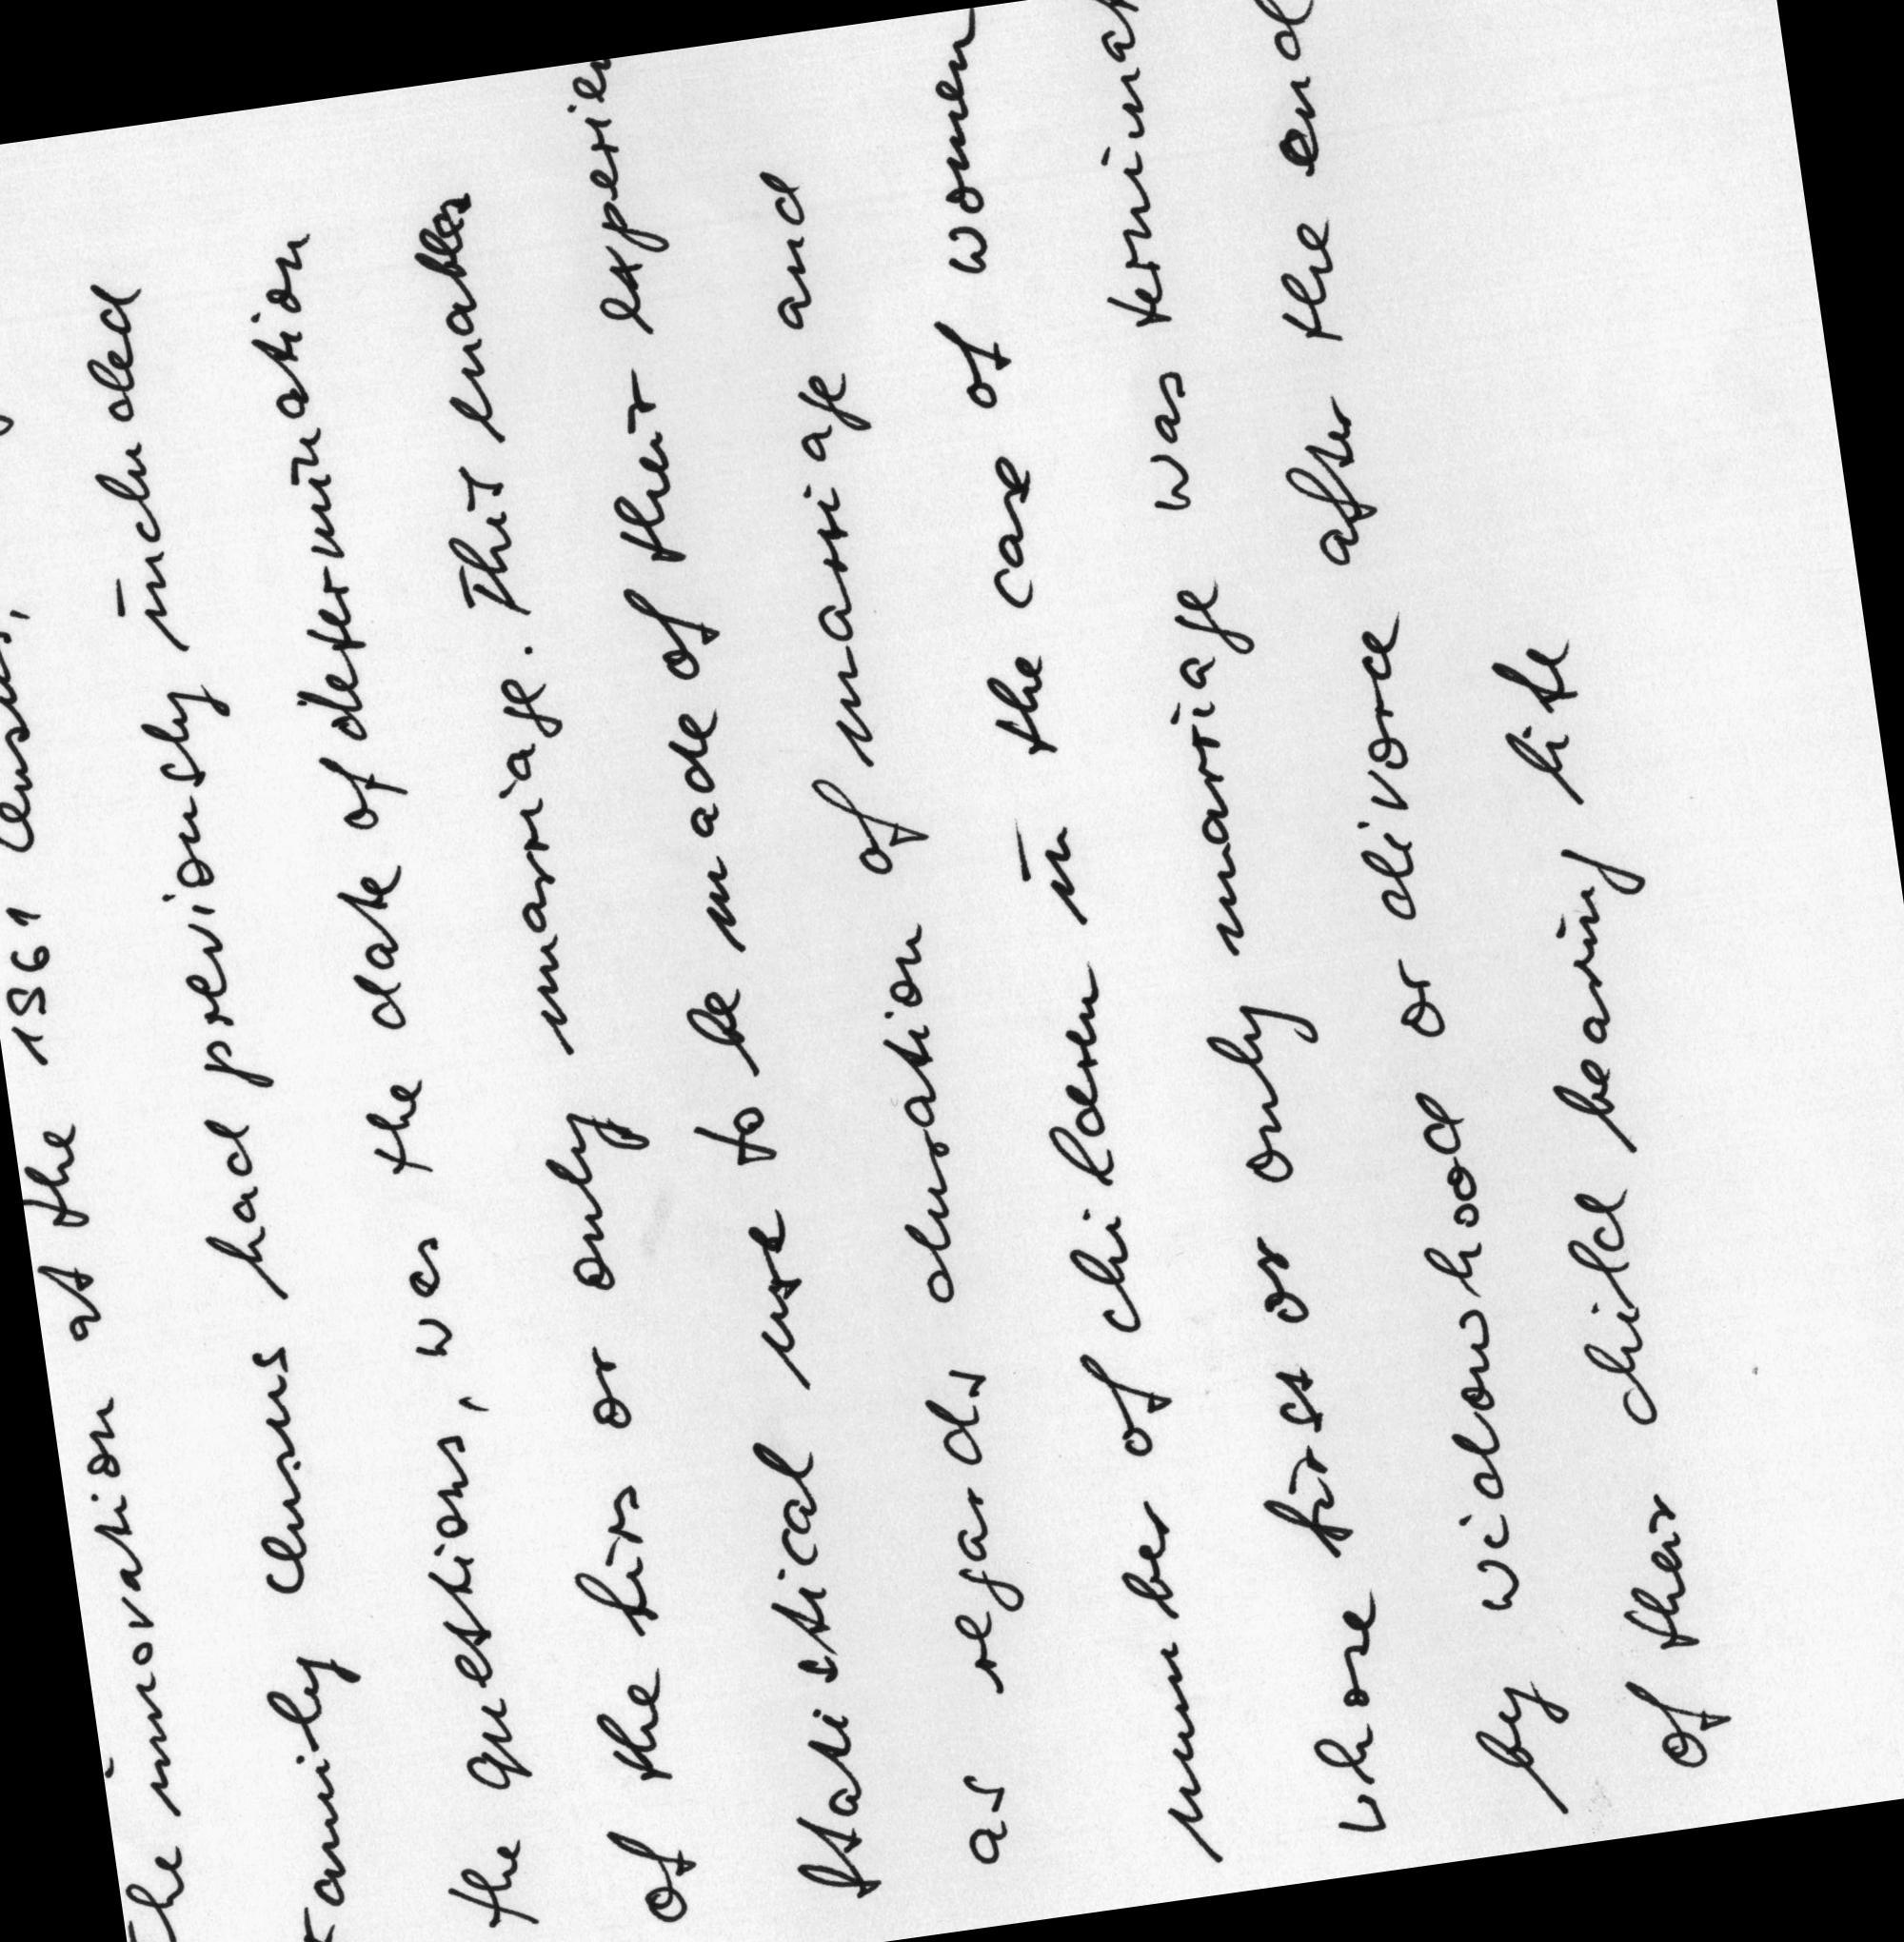 The innovation at the 1961 Census,
Family Census had previously included
the questions, was the date of determination
of the firs or only marriage. This enables
statistical use to be made of their experien
as regards duration of marriage and
number of children in the case of women
whose first or only marriage was terminat
by widowhood or divorce after the end
of their child bearing life